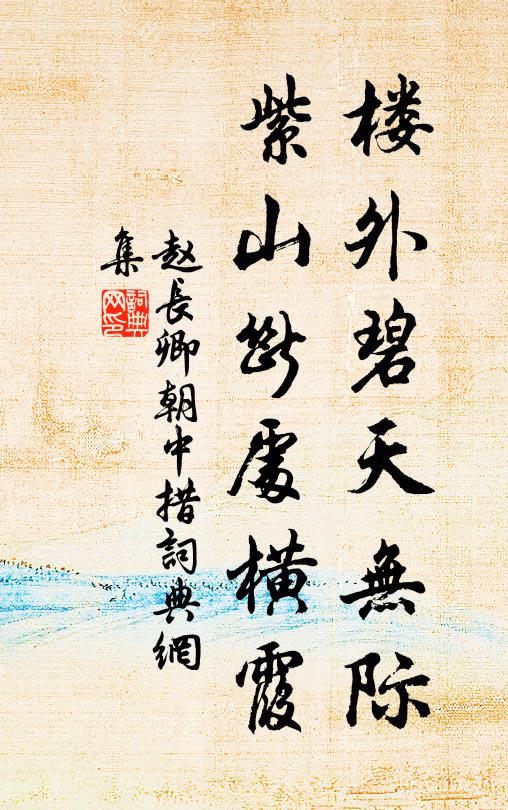 楼外碧天無际
紫山断處横霞
赵長卿朝中措詞典網
集
詞典
网印